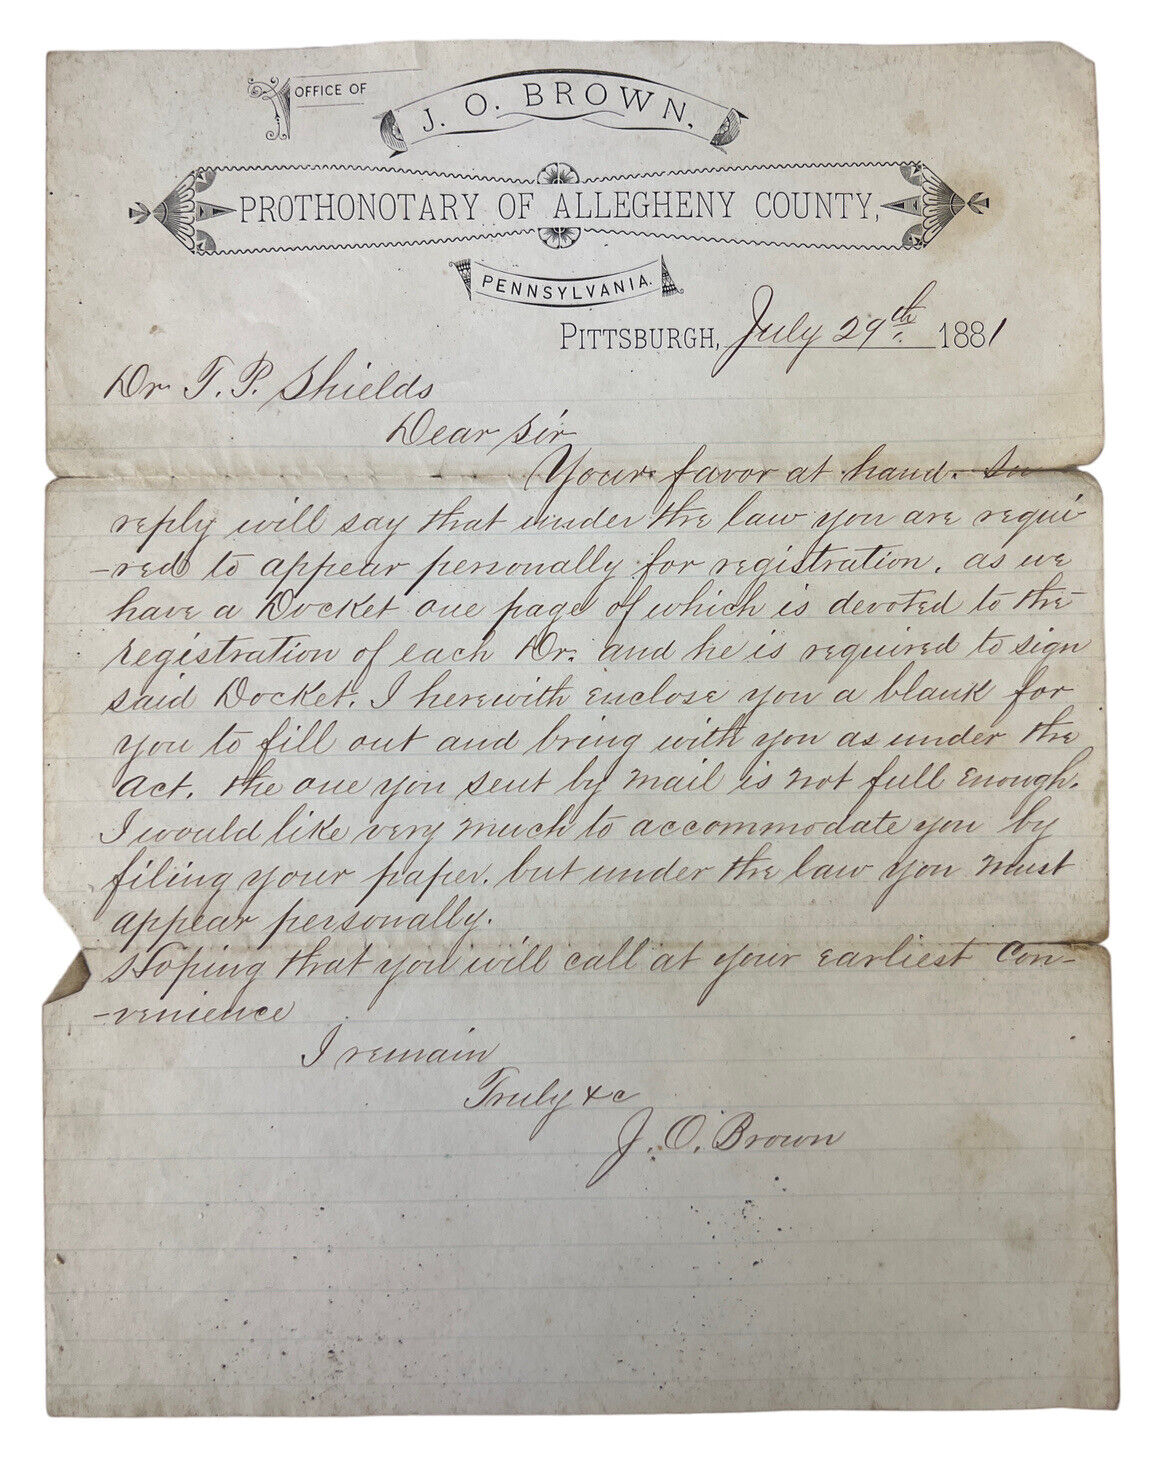 OFFICE OF
J. O. BROWN,
PROTHONOTARY OF ALLEGHENY COUNTY,
PENNSYLVANIA.
PITTSBURGH, July 29th. 1881
Dr. T. P. Shields
Dear Sir
Your favor at hand. In
reply will say that under the law you are requi-
-red to appear personally for registration. as we
have a Docket one page of which is devoted to the
registration of each Dr. and he is required to sign
said Docket. I herewith enclose you a blank for
you to fill out and bring with you as under the
act. the one you sent by mail is not full enough.
I would like very much to accommodate you by
filing your paper. but under the law you must
appear personally.
Hoping that you will call at your earliest con-
-venience
I remain
Truly &c
J. O. Brown